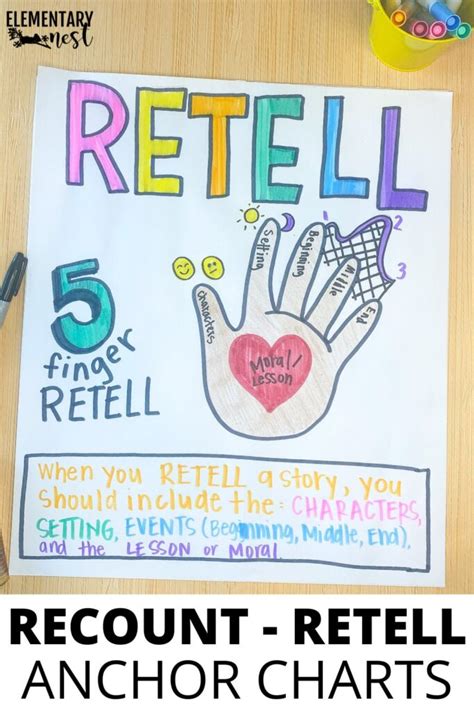 ELEMENTARY
nest
RETELL
1
2
3
Setting
Beginning
Middle
End
Characters
Moral/
Lesson
5
finger
RETELL
When you RETELL a story, you
should include the: CHARACTERS,
SETTING, EVENTS (Beginning, Middle, End),
and the LESSON or Moral.
RECOUNT - RETELL
ANCHOR CHARTS